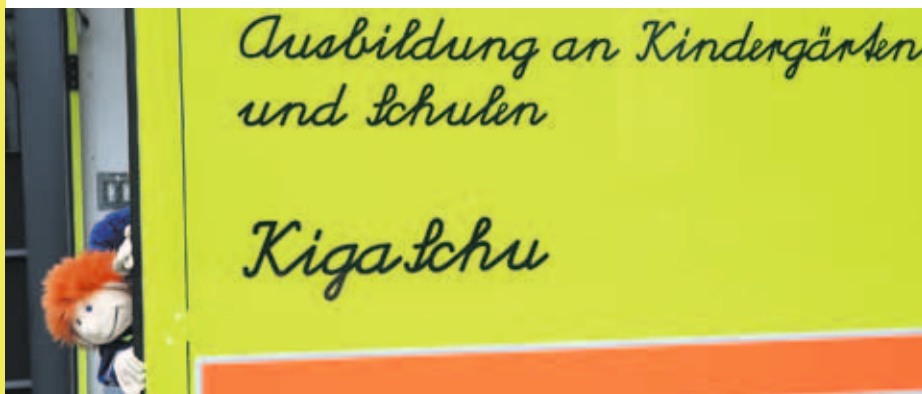 Ausbildung an Kindergärten
und Schulen
KigaSchu